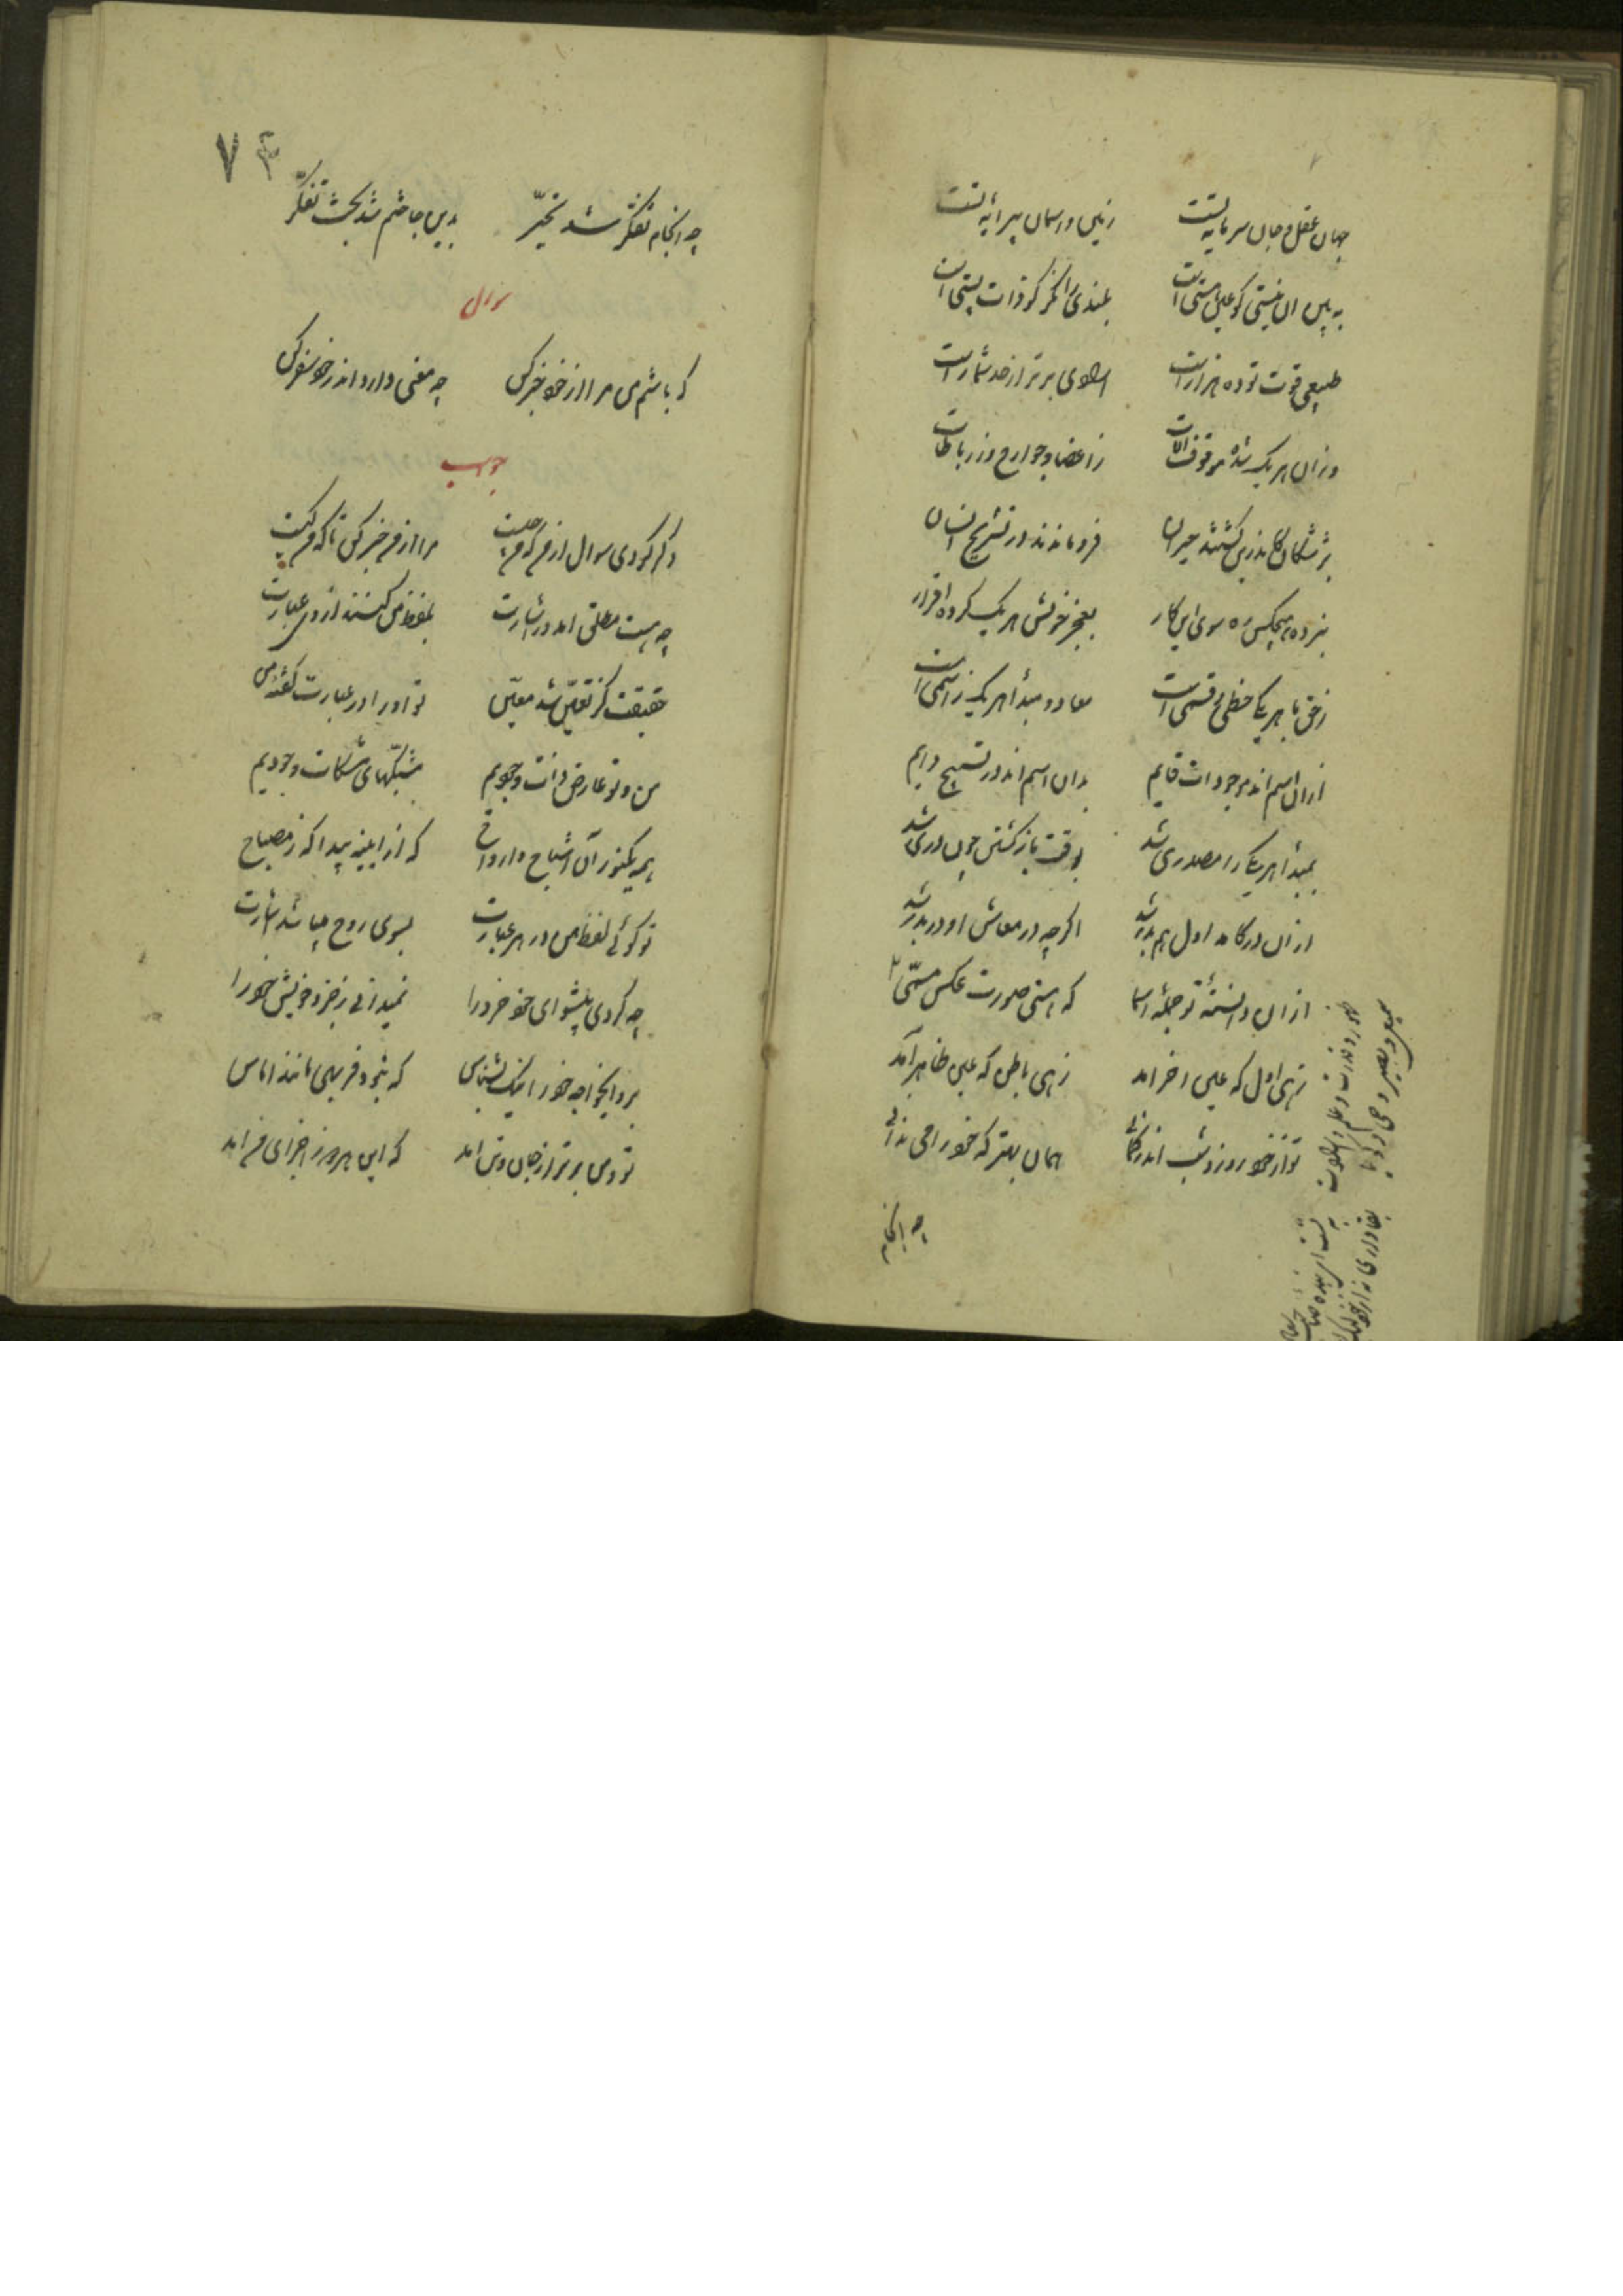 جهان عقل و جان سرمایه تست زمین و آسمان پیرایه تست
به بین آن نیستی کو عین هستی است بلندی را نگر کو ذات پستی است
طبیعی قوت تو ده هزار است ارادی برتر از حد شمار است
وزان هر یک شده موقوف آلات ز اعضا و جوارح وز رباطات
پزشکان اندرین گشتند حیران فرو ماندند در تشریح انسان
نبرده هیچکس ره سوی این کار بعجز خویش هر یک کرده اقرار
ز حق با هر یکی حظی و قسمی است معاد و مبدأ هر یک ز اسمی است
از آن اسم اند موجودات قایم بدان اسم اند در تسبیح دایم
بمبدأ هر یکی زان مصدری شد بوقت بازگشتن چون دری شد
از آن در کامد اول هم بدر شد اگر چه در معاش او در بدر شد
از آن دانسته تو جمله اسما که هستی صورت عکس مسمّی
زهی اول که عین آخر آمد زهی باطن که عین ظاهر آمد
تو از خود روز و شب اندر گمانی همان بهتر که خود را می ندانی
ظهور قدرت و علم و ارادت
سمیع و بصیر و حی و گویا
چه انجام
۷۴
چه انجام تفکر شد تحیّر بدین جا ختم شد بحث تفکّر
سوال
که باشم من مرا از خود خبر کن چه معنی دارد اندر خود سفر کن
جواب
دگر کردی سوال از من که من چیست مرا از من خبر کن تا که من کیست
چه هست مطلق آمد در اشارت بلفظ من کنند از وی عبارت
حقیقت کز تعیّن شد معیّن تو او را در عبارت گفته من
من و تو عارض ذات وجودیم مشبّکهای مشکات وجودیم
همه یک نور دان اشباح و ارواح که از آیینه پیدا که ز مصباح
تو گوئی لفظ من در هر عبارت بسوی روح میباشد اشارت
چه کردی پیشوای خود خرد را نمیدانی ز جزو خویش خود را
برو ای خواجه خود را نیک بشناس که نبود فربهی مانند آماس
تو و من برتر از جان و تن آمد که این هر دو ز اجزای من آمد